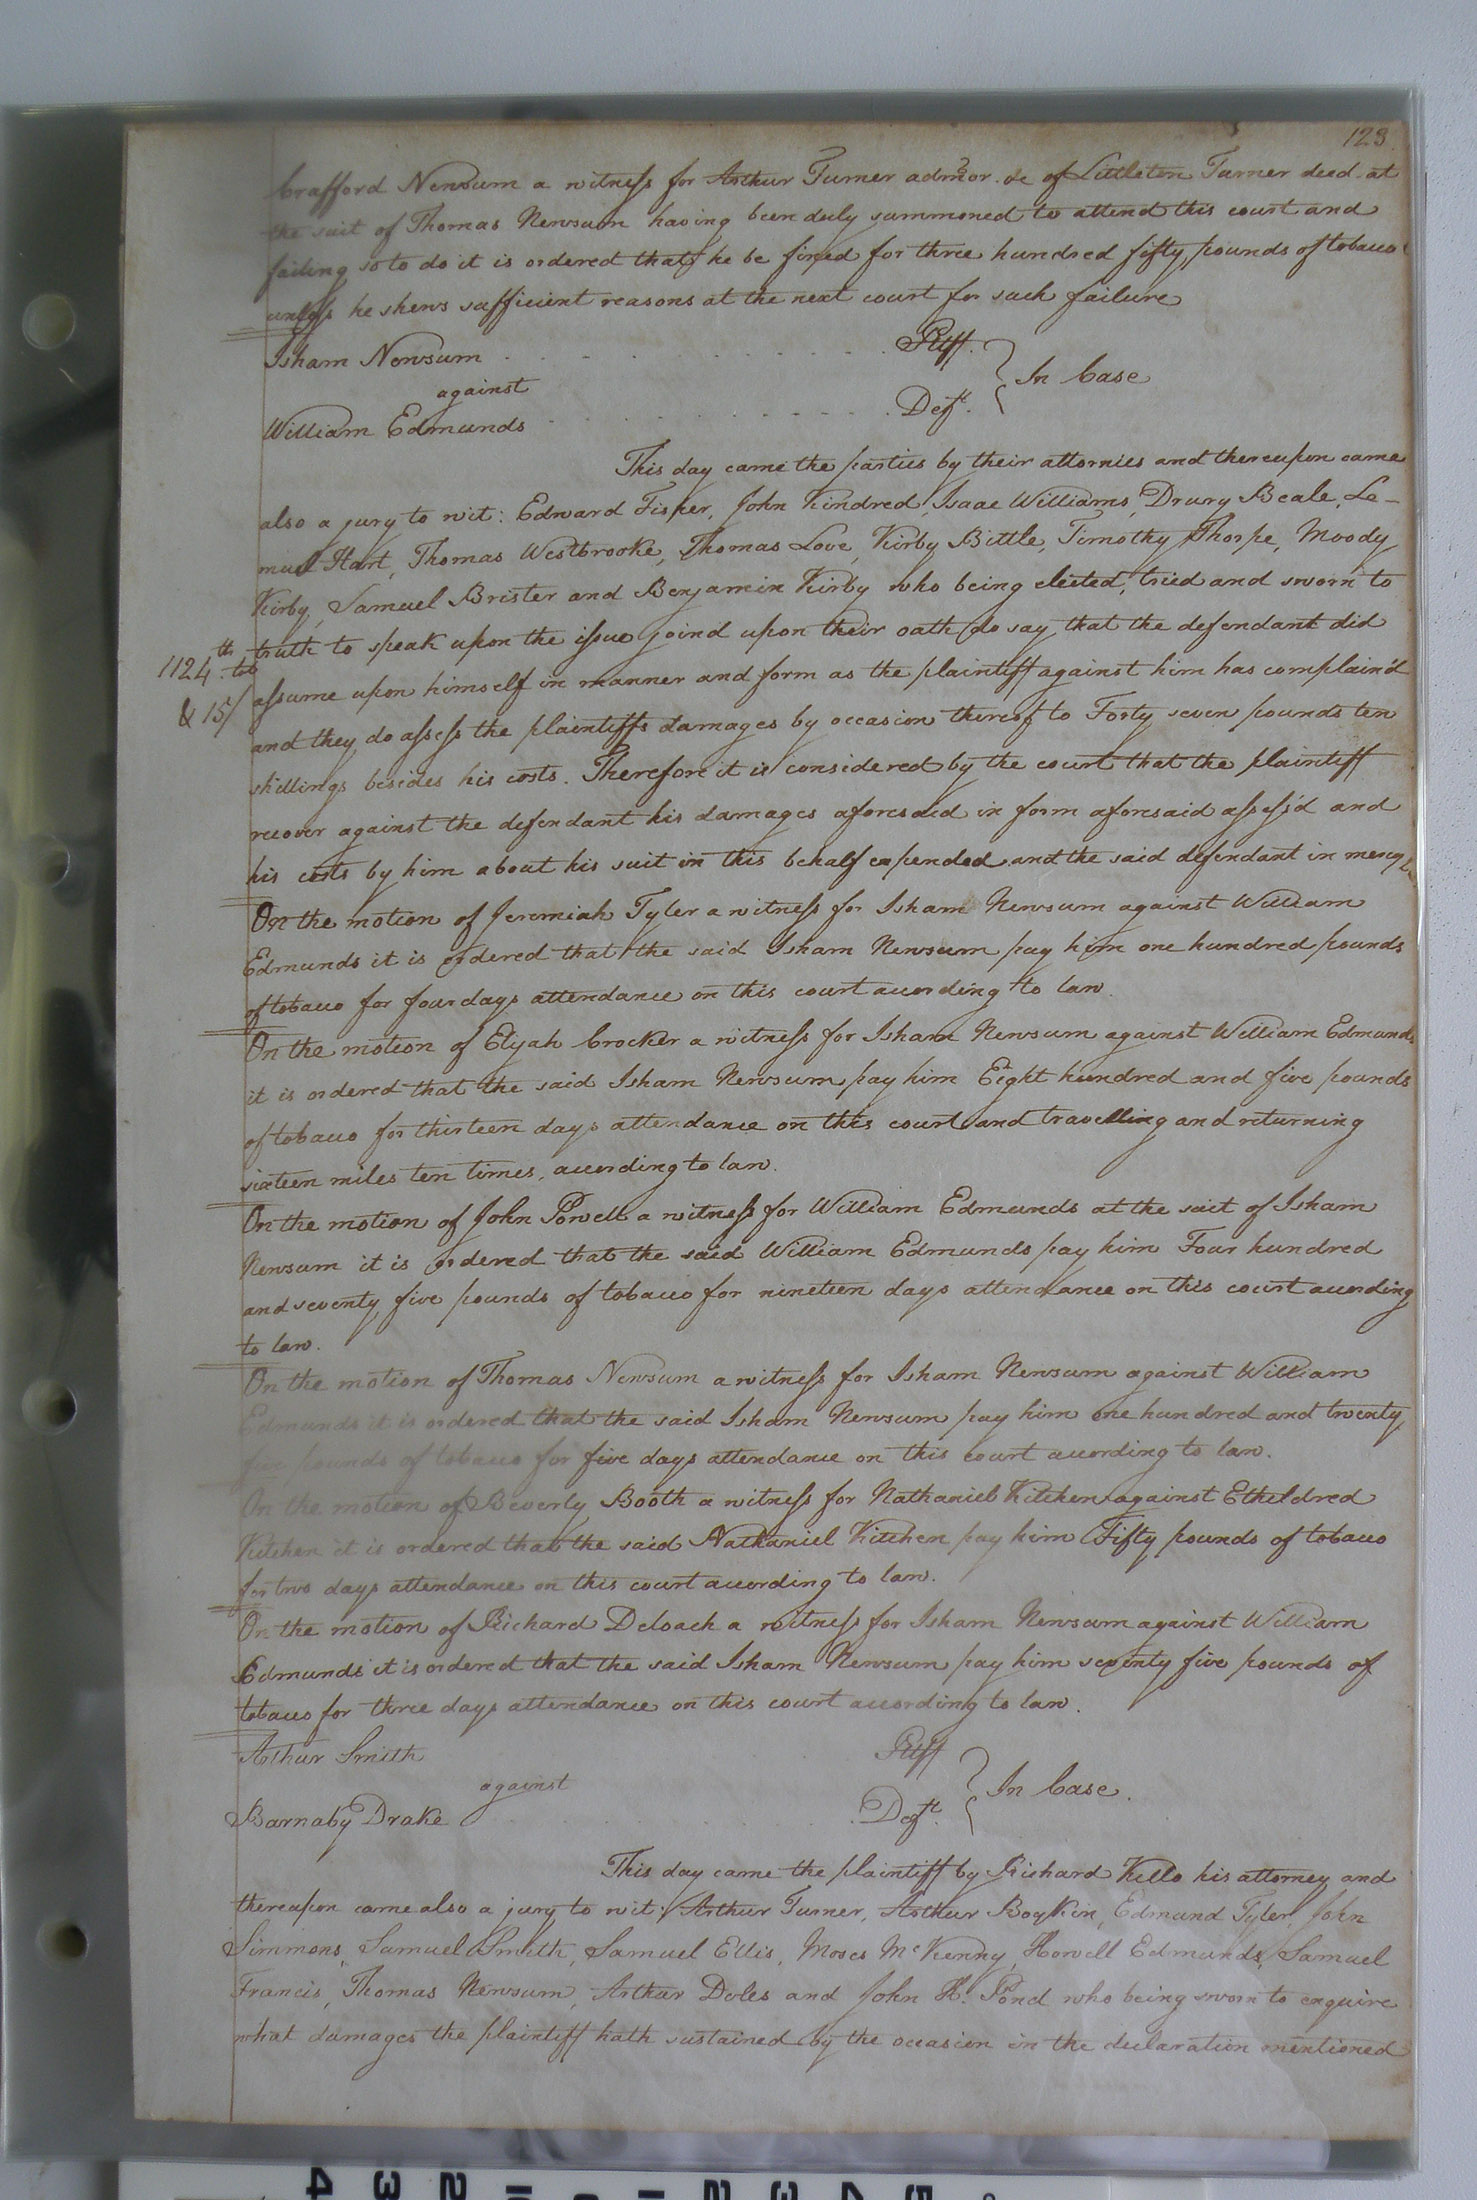 123.
Crafford Newsum a witness for Arthur Turner admor. &c of Littleton Turner decd. at
the suit of Thomas Newsum having been duly summoned to attend this court and
failing so to do it is ordered that he be fined for three hundred fifty pounds of tobacco
unless he shews sufficient reasons at the next court for such failure
Isham Newsum . . . . . . . . . . Pltff.
against
In Case
William Edmunds . . . . . . . . . . Deft.
This day came the parties by their attornies and thereupon came
also a jury to wit: Edward Fisher, John Kindred, Isaac Williams, Drury Beale, Le-
muel Hart, Thomas Westbrooke, Thomas Love, Kirby Bittle, Timothy Thorpe, Moody
Kirby, Samuel Brister and Benjamin Kirby who being elected, tried and sworn to
truth to speak upon the issue joind upon their oath do say that the defendant did
1124 th. tob
assume upon himself in manner and form as the plaintiff against him has complain'd
& 15/
and they do assess the plaintiffs damages by occasion thereof to Forty seven pounds ten
shillings besides his costs. Therefore it is considered by the court that the plaintiff
recover against the defendant his damages aforesaid in form aforesaid assess'd and
his costs by him about his suit in this behalf expended and the said defendant in mercy &c
On the motion of Jeremiah Tyler a witness for Isham Newsum against William
Edmunds it is ordered that the said Isham Newsum pay him one hundred pounds
of tobacco for four days attendance on this court according to law.
On the motion of Elijah Crocker a witness for Isham Newsum against William Edmunds
it is ordered that the said Isham Newsum pay him Eight hundred and five pounds
of tobacco for thirteen days attendance on this court and travelling and returning
sixteen miles ten times, according to law.
On the motion of John Powell a witness for William Edmunds at the suit of Isham
Newsum it is ordered that the said William Edmunds pay him Four hundred
and seventy five pounds of tobacco for nineteen days attendance on this court according
to law.
On the motion of Thomas Newsum a witness for Isham Newsum against William
Edmunds it is ordered that the said Isham Newsum pay him one hundred and twenty
five pounds of tobacco for five days attendance on this court according to law.
On the motion of Beverly Booth a witness for Nathaniel Kitchen against Etheldred
Kitchen it is ordered that the said Nathaniel Kitchen pay him Fifty pounds of tobacco
for two days attendance on this court according to law.
On the motion of Richard Deloach a witness for Isham Newsum against William
Edmunds it is ordered that the said Isham Newsum pay him seventy five pounds of
tobacco for three days attendance on this court according to law.
Arthur Smith Pltff
against
In Case.
Barnaby Drake . . . . . . Deft.
This day came the plaintiff by Richard Kello his attorney and
thereupon came also a jury to wit: Arthur Turner, Arthur Boykin, Edmund Tyler, John
Simmons, Samuel Smith, Samuel Ellis, Moses McKenny, Howell Edmunds, Samuel
Francis, Thomas Newsum, Arthur Doles and John H. Pond who being sworn to enquire
what damages the plaintiff hath sustained by the occasion in the declaration mentioned
4 3 2 1 0 1 2 3 4 5